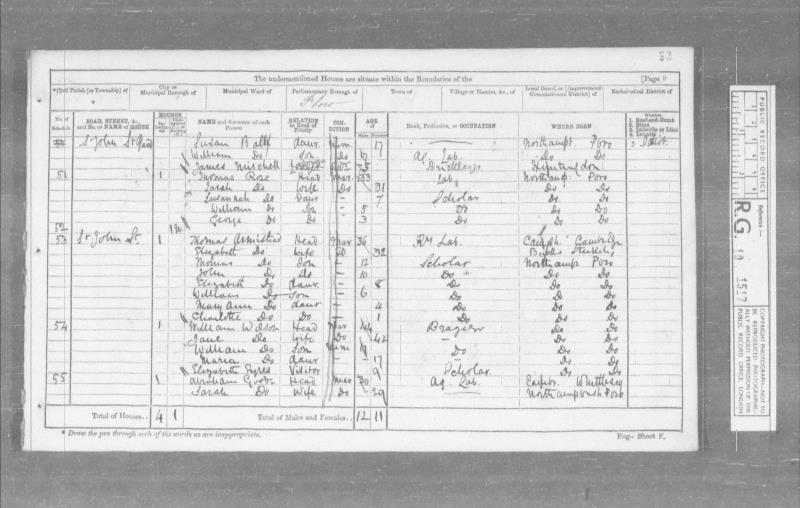 The undermentioned Houses are situate within the Boundaries of the [Page 9
*Civil Parish [or Township] of City or Municipal Borough of Municipal Ward of Parliamentary Borough of Town of Village or Hamlet, &c., of Local Board, or [Improvement Commissioners District] of Ecclesiastical District of
Pboro
No. of Schedule ROAD, STREET, &c., and No. or NAME of HOUSE HOUSES NAME and Surname of each Person RELATION to Head of Family CONDITION AGE of Rank, Profession, or OCCUPATION WHERE BORN Whether 1. Deaf-and-Dumb 2. Blind 3. Imbecile or Idiot 4. Lunatic
Males Females
St John St Susan Ball daur. Unm 17 Northampt Pboro 3 Idiot
William Do Son Do Ag Lab Do Do
James Mitchell Bricklayer Huntingdon
51 1 Thomas Rose Head Mar 33 Lab Northamp Pboro
Sarah Do Wife Do 31 Do Do
Susannah Do Daur 7 Scholar Do Do
William Do Son 5 Do Do Do
George Do Do 3 Do Do
52
53 St John St. 1 Thomas Head Mar 36 RM Lab. Cambridge
Elizabeth Do Wife Do 32
Thomas Do Son 12 Scholar Northamp Pboro
John Do Do 10 Do Do Do
Elizabeth Do daur. 8 Do Do Do
William Do Son 6 Do Do Do
Mary Ann Do daur 4 Do Do
Charlotte Do Do 1 Do Do
54 1 William Wilson Head Mar 44 Brazier Do Do
Jane Do Wife Do 42 Do Do
William Do Son Unm 19 Do Do Do
Maria Do daur 17 Do Do
Elizabeth Visitor 9 Scholar Do Do
55 1 Abraham Head Mar 30 Ag. Lab. Whittlesey
Sarah Do Wife Do 29
Total of Houses.. 4 1 Total of Males and Females.. 12 11
* Draw the pen through such of the words as are inappropriate.
Eng.- Sheet F.
PUBLIC RECORD OFFICE
Reference:-
R.G. 10 1517
COPYRIGHT PHOTOGRAPH-NOT TO BE REPRODUCED PHOTOGRAPHICALLY WITHOUT PERMISSION OF THE PUBLIC RECORD OFFICE, LONDON